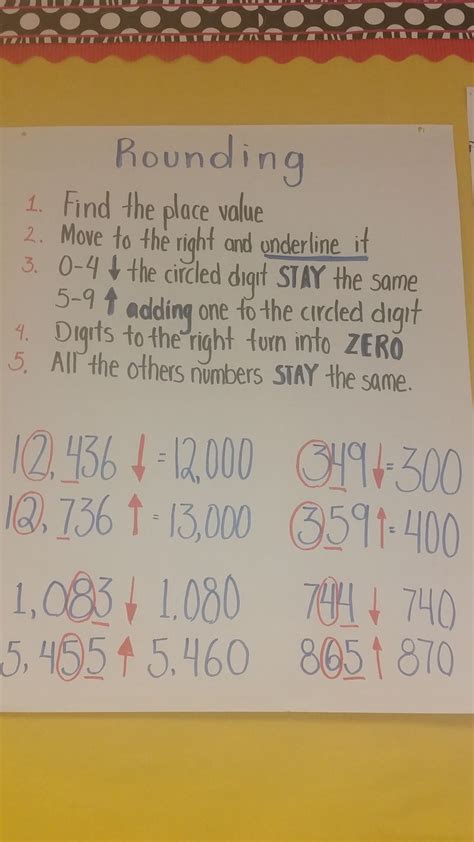 Rounding
1. Find the place value
2. Move to the right and underline it
3. 0-4 ↓ the circled digit STAY the same
5-9 ↑ adding one to the circled digit
4. Digits to the right turn into ZERO
5. All the others numbers STAY the same.
12,436 ↓ = 12,000
349 ↓ = 300
12,736 ↑ = 13,000
359 ↑ = 400
1,083 ↓ 1.080
744 ↓ 740
5,455 ↑ 5,460
865 ↑ 870